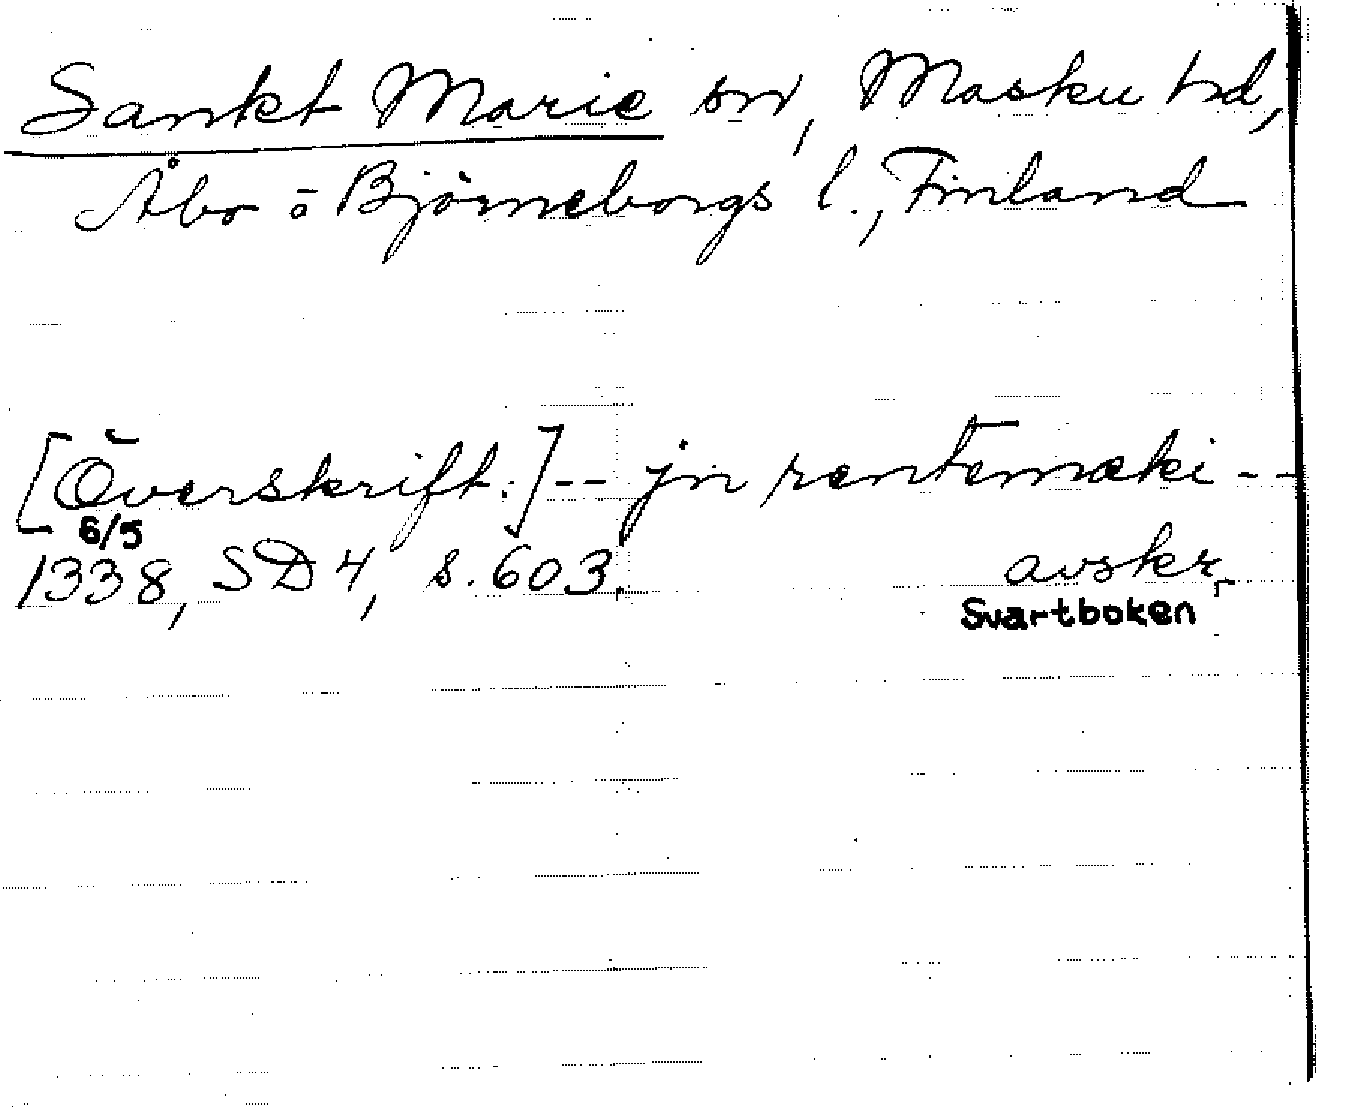 Sankt Marie sn, Masku hd,
Åbo o Björneborgs l., Finland
[Överskrift:] -- jn rentemæki --
6/5
1338, SD 4, s. 603. avskr.
Svartboken